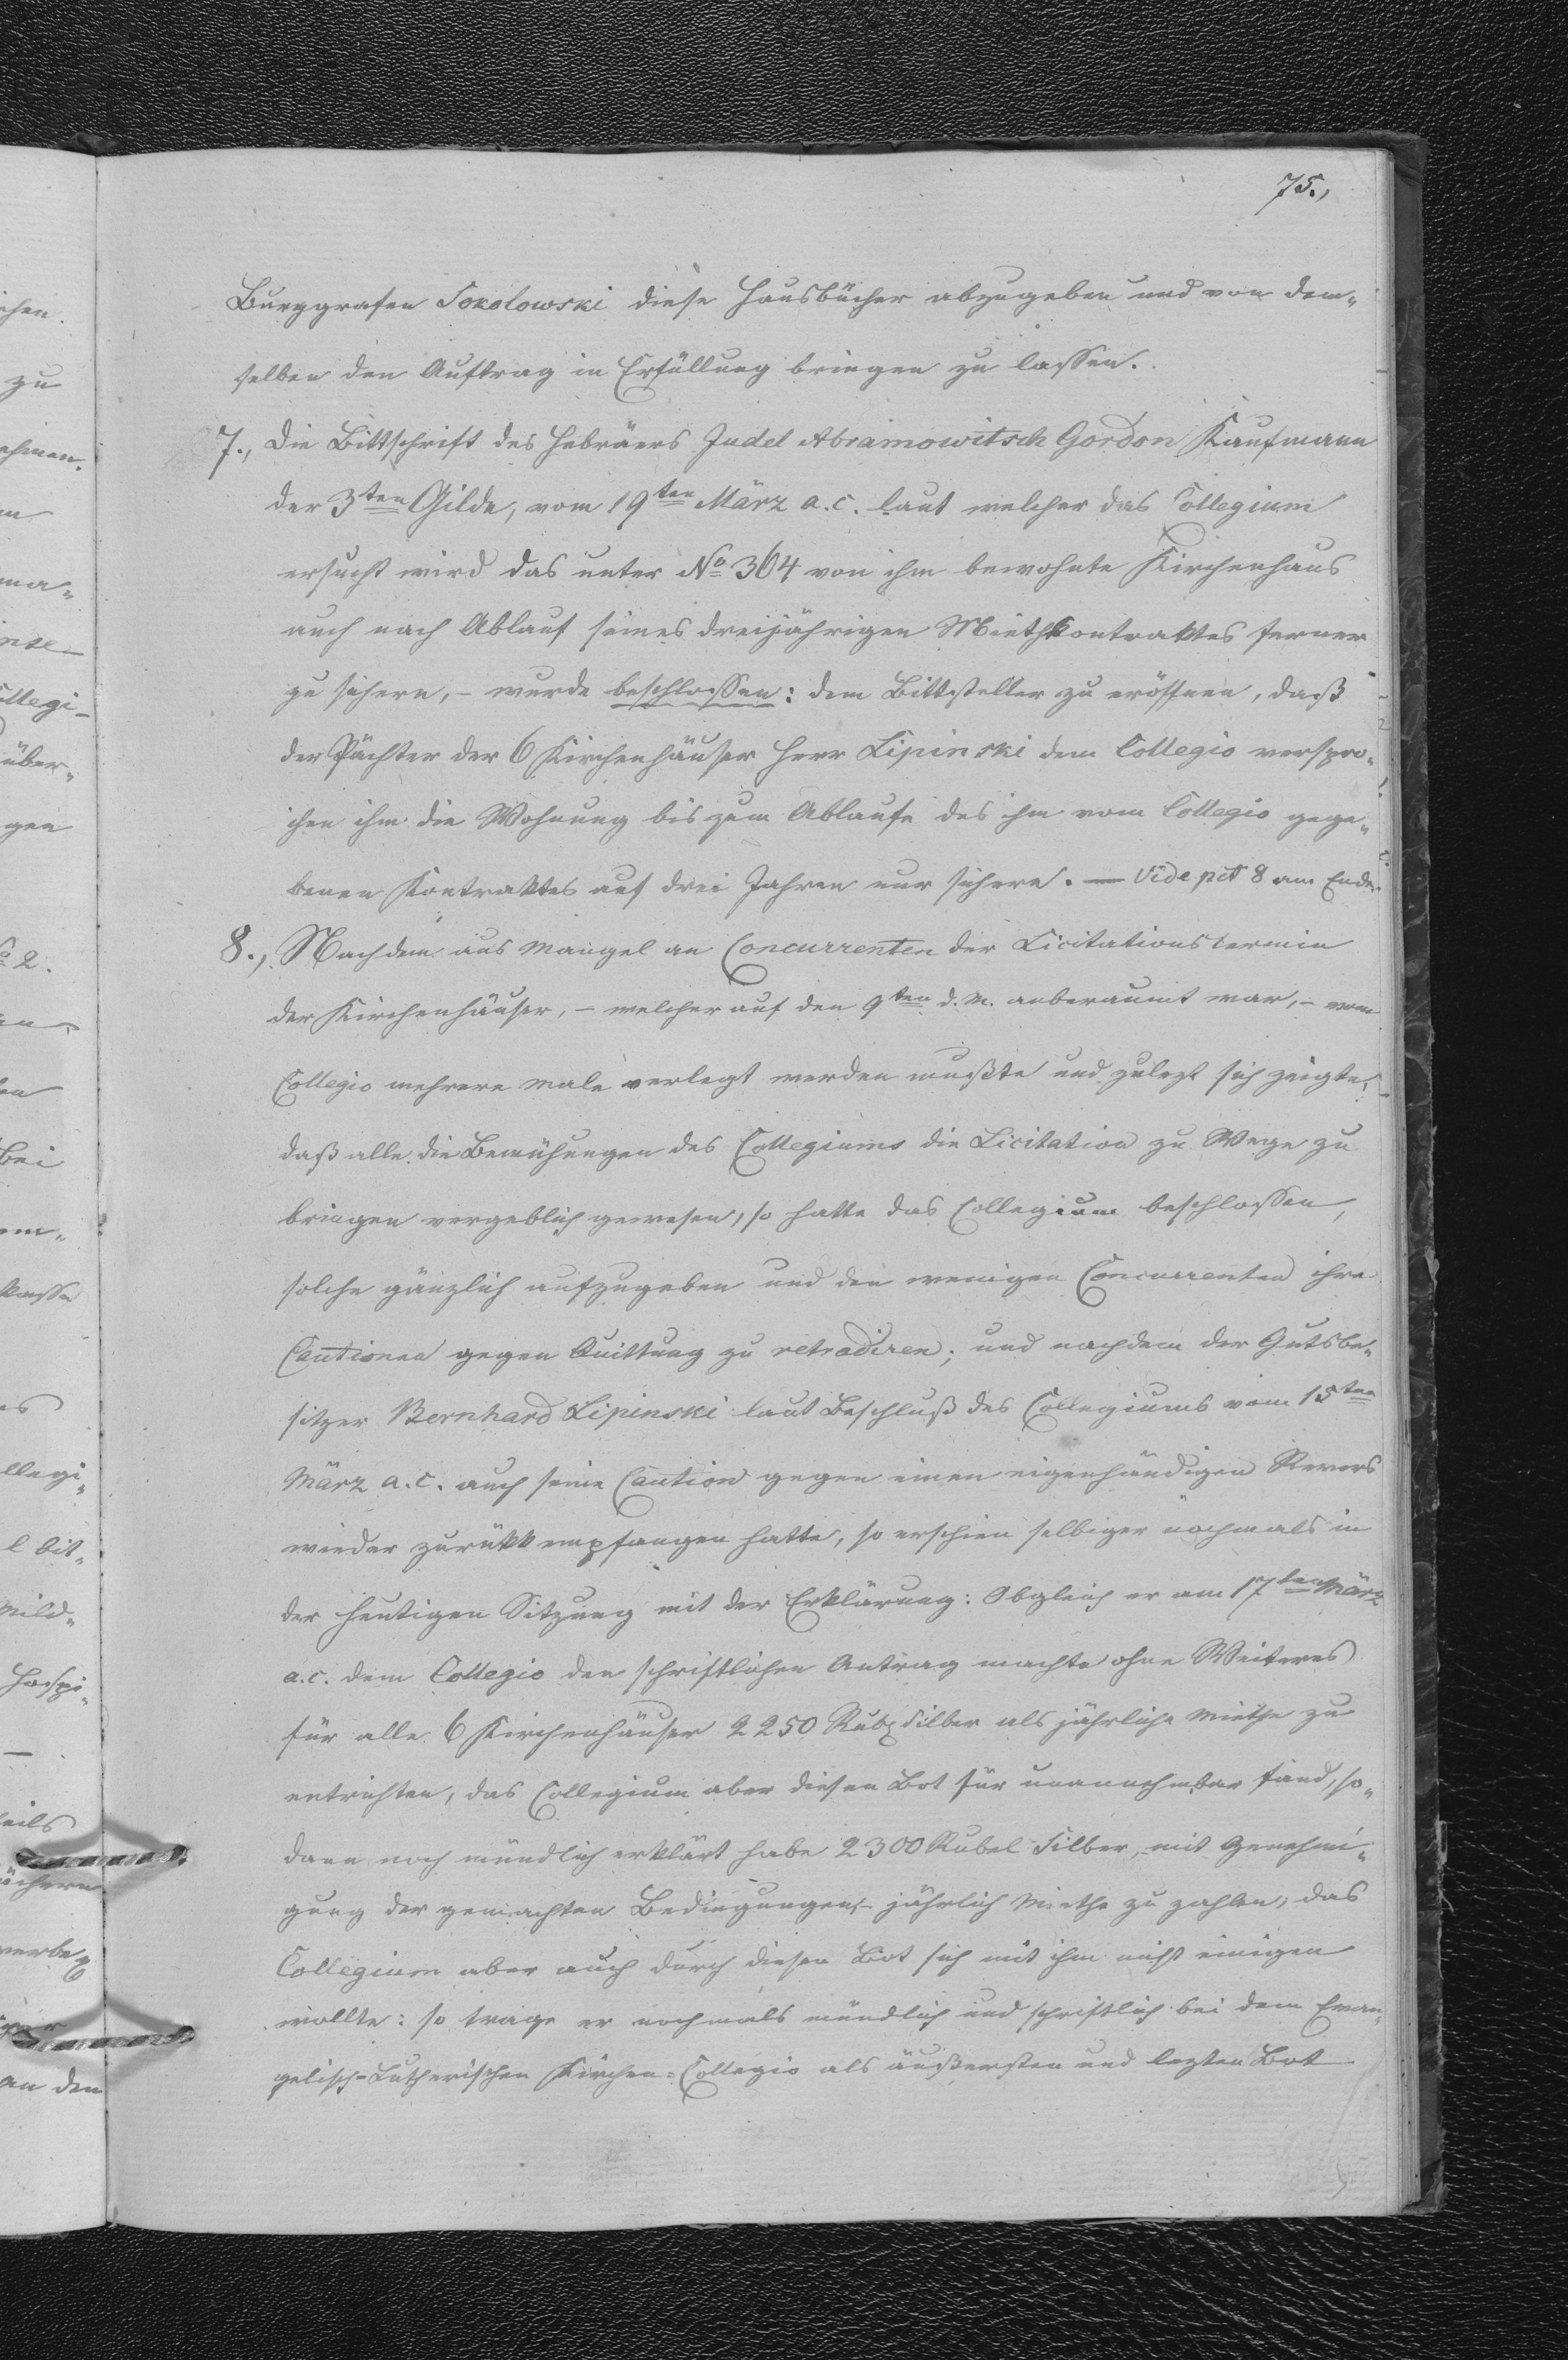 75.,
Burggrafen Sokolowski diese Hausbücher abzugeben und von dem„
selben den Auftrag in Erfüllung bringen zu lassen.
7., Die Bittschrift des Hebräers Judel Abramowitsch Gordon Kaufmann
der 3ten Gilde, vom 19ten März a.c. laut welcher das Collegium
ersucht wird das unter No 364 von ihm bewohnte Kirchenhaus
auch nach Ablauf seines dreijährigen Miethkontraktes ferner
zu sichern, – wurde beschlossen: dem Bittsteller zu eröffnen, daß
der Pächter der 6 Kirchenhäuser Herr Lipinski dem Collegio verspro„
chen ihm die Wohnung bis zum Ablaufe des ihm vom Collegio gege„
benen Kontraktes auf drei Jahren nur sichere. — Vide pct 8 am Ende
8., Nachdem aus Mangel an Concurrenten der Licitationstermin
der Kirchenhäuser, – welcher auf den 9ten d. M. anberaumt war, – vom
Collegio mehrere male verlegt werden mußte und zulezt sich zeigte,
daß alle die Bemühungen des Collegiums die Licitation zu Wege zu
bringen vergeblich gewesen, so hatte das Collegium beschlossen,
solche gänzlich aufzugeben und den wenigen Concurrenten ihre
Cautionen gegen Quittung zu retradiren; und nachdem der Gutsbe„
sitzer Bernhard Lipinski laut Beschluß des Collegiums vom 15ten
März a.c. auch seine Caution gegen einen eigenhändigen Revers
wieder zurükk empfangen hatte, so erschien selbiger nochmals in
der heutigen Sitzung mit der Erklärung: Obgleich er am 17ten März
a.c. dem Collegio den schriftlichen Antrag machte ohne Weiteres
für alle 6 Kirchenhäuser 2250 Rub Silber als jährliche Miethe zu
entrichten, das Collegium aber diesen Bot für unannehmbar fand, so„
dann noch mündlich erklärt habe 2300 Rubel Silber, mit Genehmi„
gung der gemachten Bedingungen, – jährlich Miethe zu zahlen; das
Collegium aber auch durch diesen Bot sich mit ihm nicht einigen
wollte: so trage er nochmals mündlich und schriftlich bei dem Evan„
gelisch-Lutherischen Kirchen=Collegio als äußersten und lezten Bot